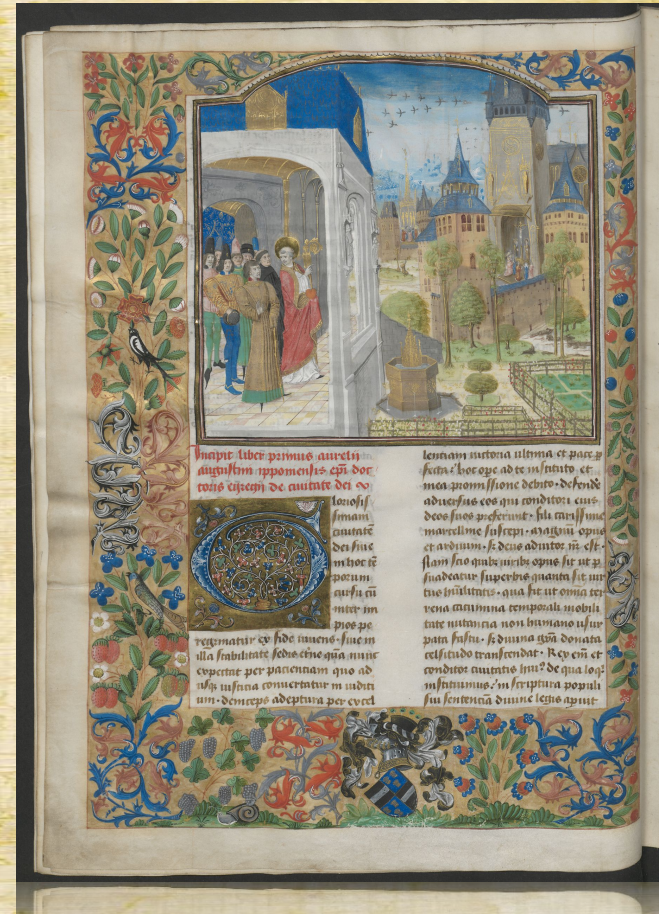 Incipit liber primus aurelii
augustini ipponensis ep̄i doc
toris eigregii de ciuitate dei
Gloriosis
simam
ciuitatē
dei siue
in hoc tē
porum
cursu cū
inter im
pios pe
regrinatur ex fide uiuens · siue in
illa stabilitate sedis et̄ne quā nunc
expectat per pacientiam quo ad
usq̄ iusticia conuertatur in iudici
um · deinceps adeptura per excel
lentiam uictoria ultima et pace p̄
fecta · hoc ope ad te instituto et
mea promissione debito · defendē
aduersus eos qui conditori eius
deos suos preferunt · fili carissime
marcelline suscepi · Magnū opus
et arduum · s; deus adiutor nr̄ est ·
Nam scio quibꝯ uiribꝯ opus sit ut p̄
suadeatur superbis quanta sit uir
tus humilitatis · qua fit ut omīa ter
rena cacumina temporali mobili
tate nutancia non humano usur
pata fastu · s; diuina gr̄a donata
celsitudo transcendat · Rex em̄ et
conditor ciuitatis huiꝯ de qua loqī
instituimus · in scriptura populi
sui sentenciā diuine legis apuit